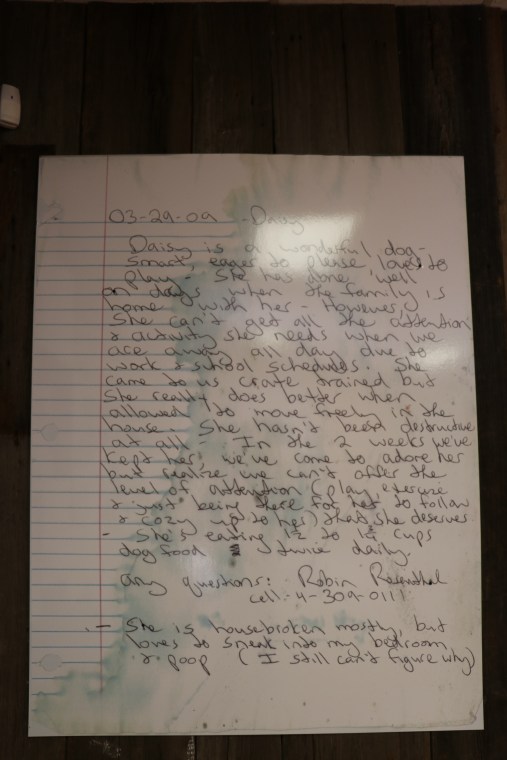 03-29-09 - Daisy
Daisy is a wonderful dog -
smart, eager to please, loves to
play. She has done well
on days when the family is
home with her - However,
she can't get all the attention
& activity she needs when we
are away all day due to
work & school schedules. She
came to us crate trained but
she really does better when
allowed to move freely in the
house. She hasn't been destructive
at all. In the 2 weeks we've
kept her, we've come to adore her
but realize we can't offer the
level of attention (play, exercise
& just being there for her to follow
& cozy up to her) that she deserves.
- She's eating to cups
dog food twice daily.
any questions: Robin Rosenthal
cell: 4-309-0111
- She is housebroken mostly, but
loves to sneak into my bedroom
& poop (I still can't figure why)